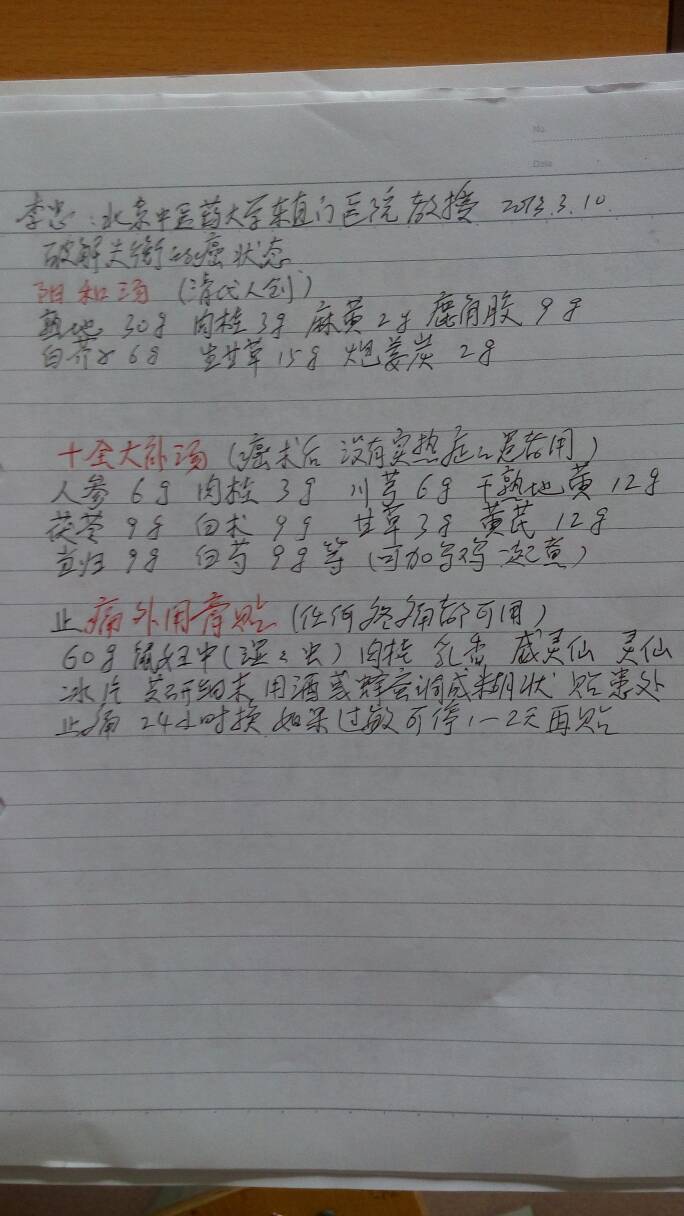 No.
Date
李忠:北京中医药大学东直门医院 教授 2013.3.10
破解失衡的癌状态
阳和汤 (清代人创)
熟地 30g 肉桂 3g 麻黄 2g 鹿角胶 9g
白芥子 6g 生甘草 15g 炮姜炭 2g
十全大补汤 (癌术后 没有实热症之患者用)
人参 6g 肉桂 3g 川芎 6g 干熟地黄 12g
茯苓 9g 白术 9g 甘草 3g 黄芪 12g
当归 9g 白芍 9g 等 (可加乌鸡一起煮)
止痛外用膏贴 (任何疼痛都可用)
60g 鼠妇虫(湿之虫) 肉桂 乳香 威灵仙 灵仙
冰片 共研细末 用酒或蜂蜜调成糊状 贴患处
止痛 24小时换 如果过敏可停1-2天再贴